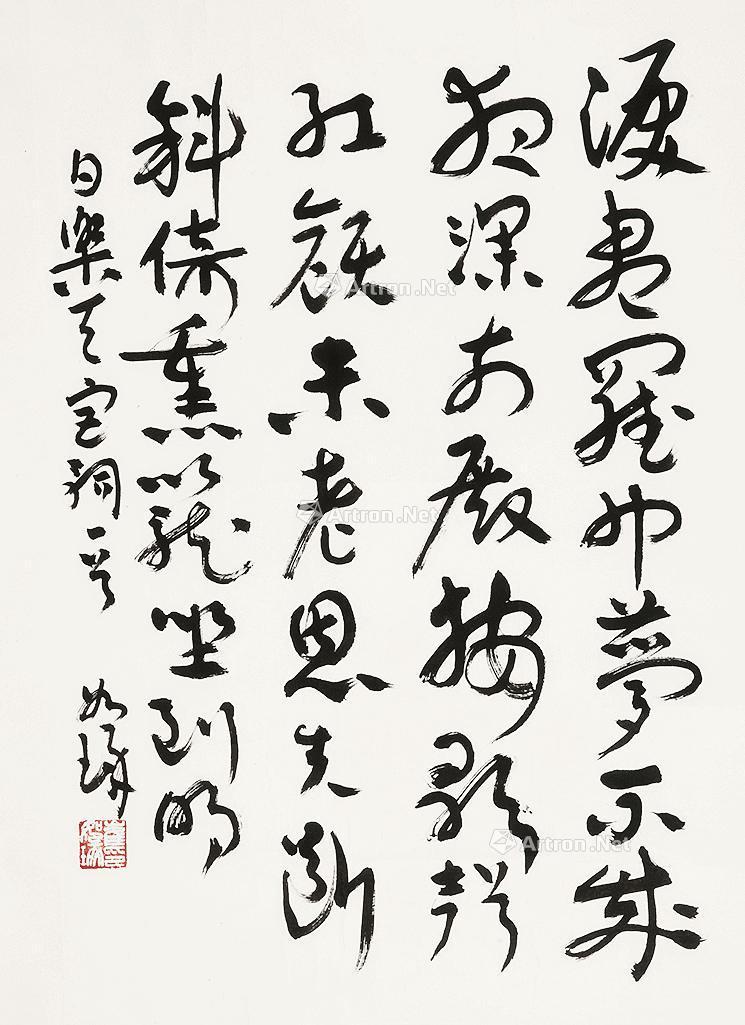 淚盡羅巾夢不成
夜深前殿按歌聲
紅顏未老恩先斷
斜倚熏籠坐到明
白樂天宮詞一首
Artron.Net
Artron.Net
Artron.Net